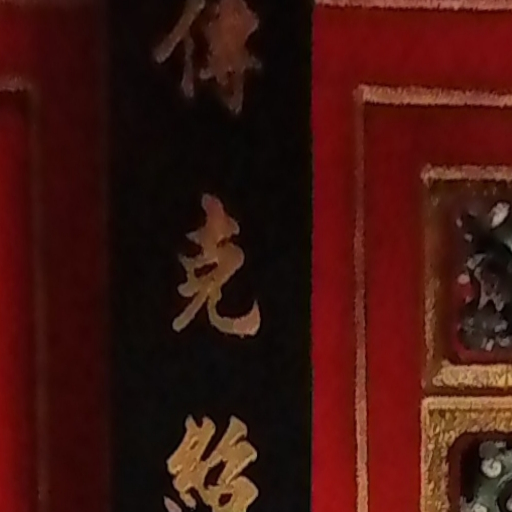 傳克紹